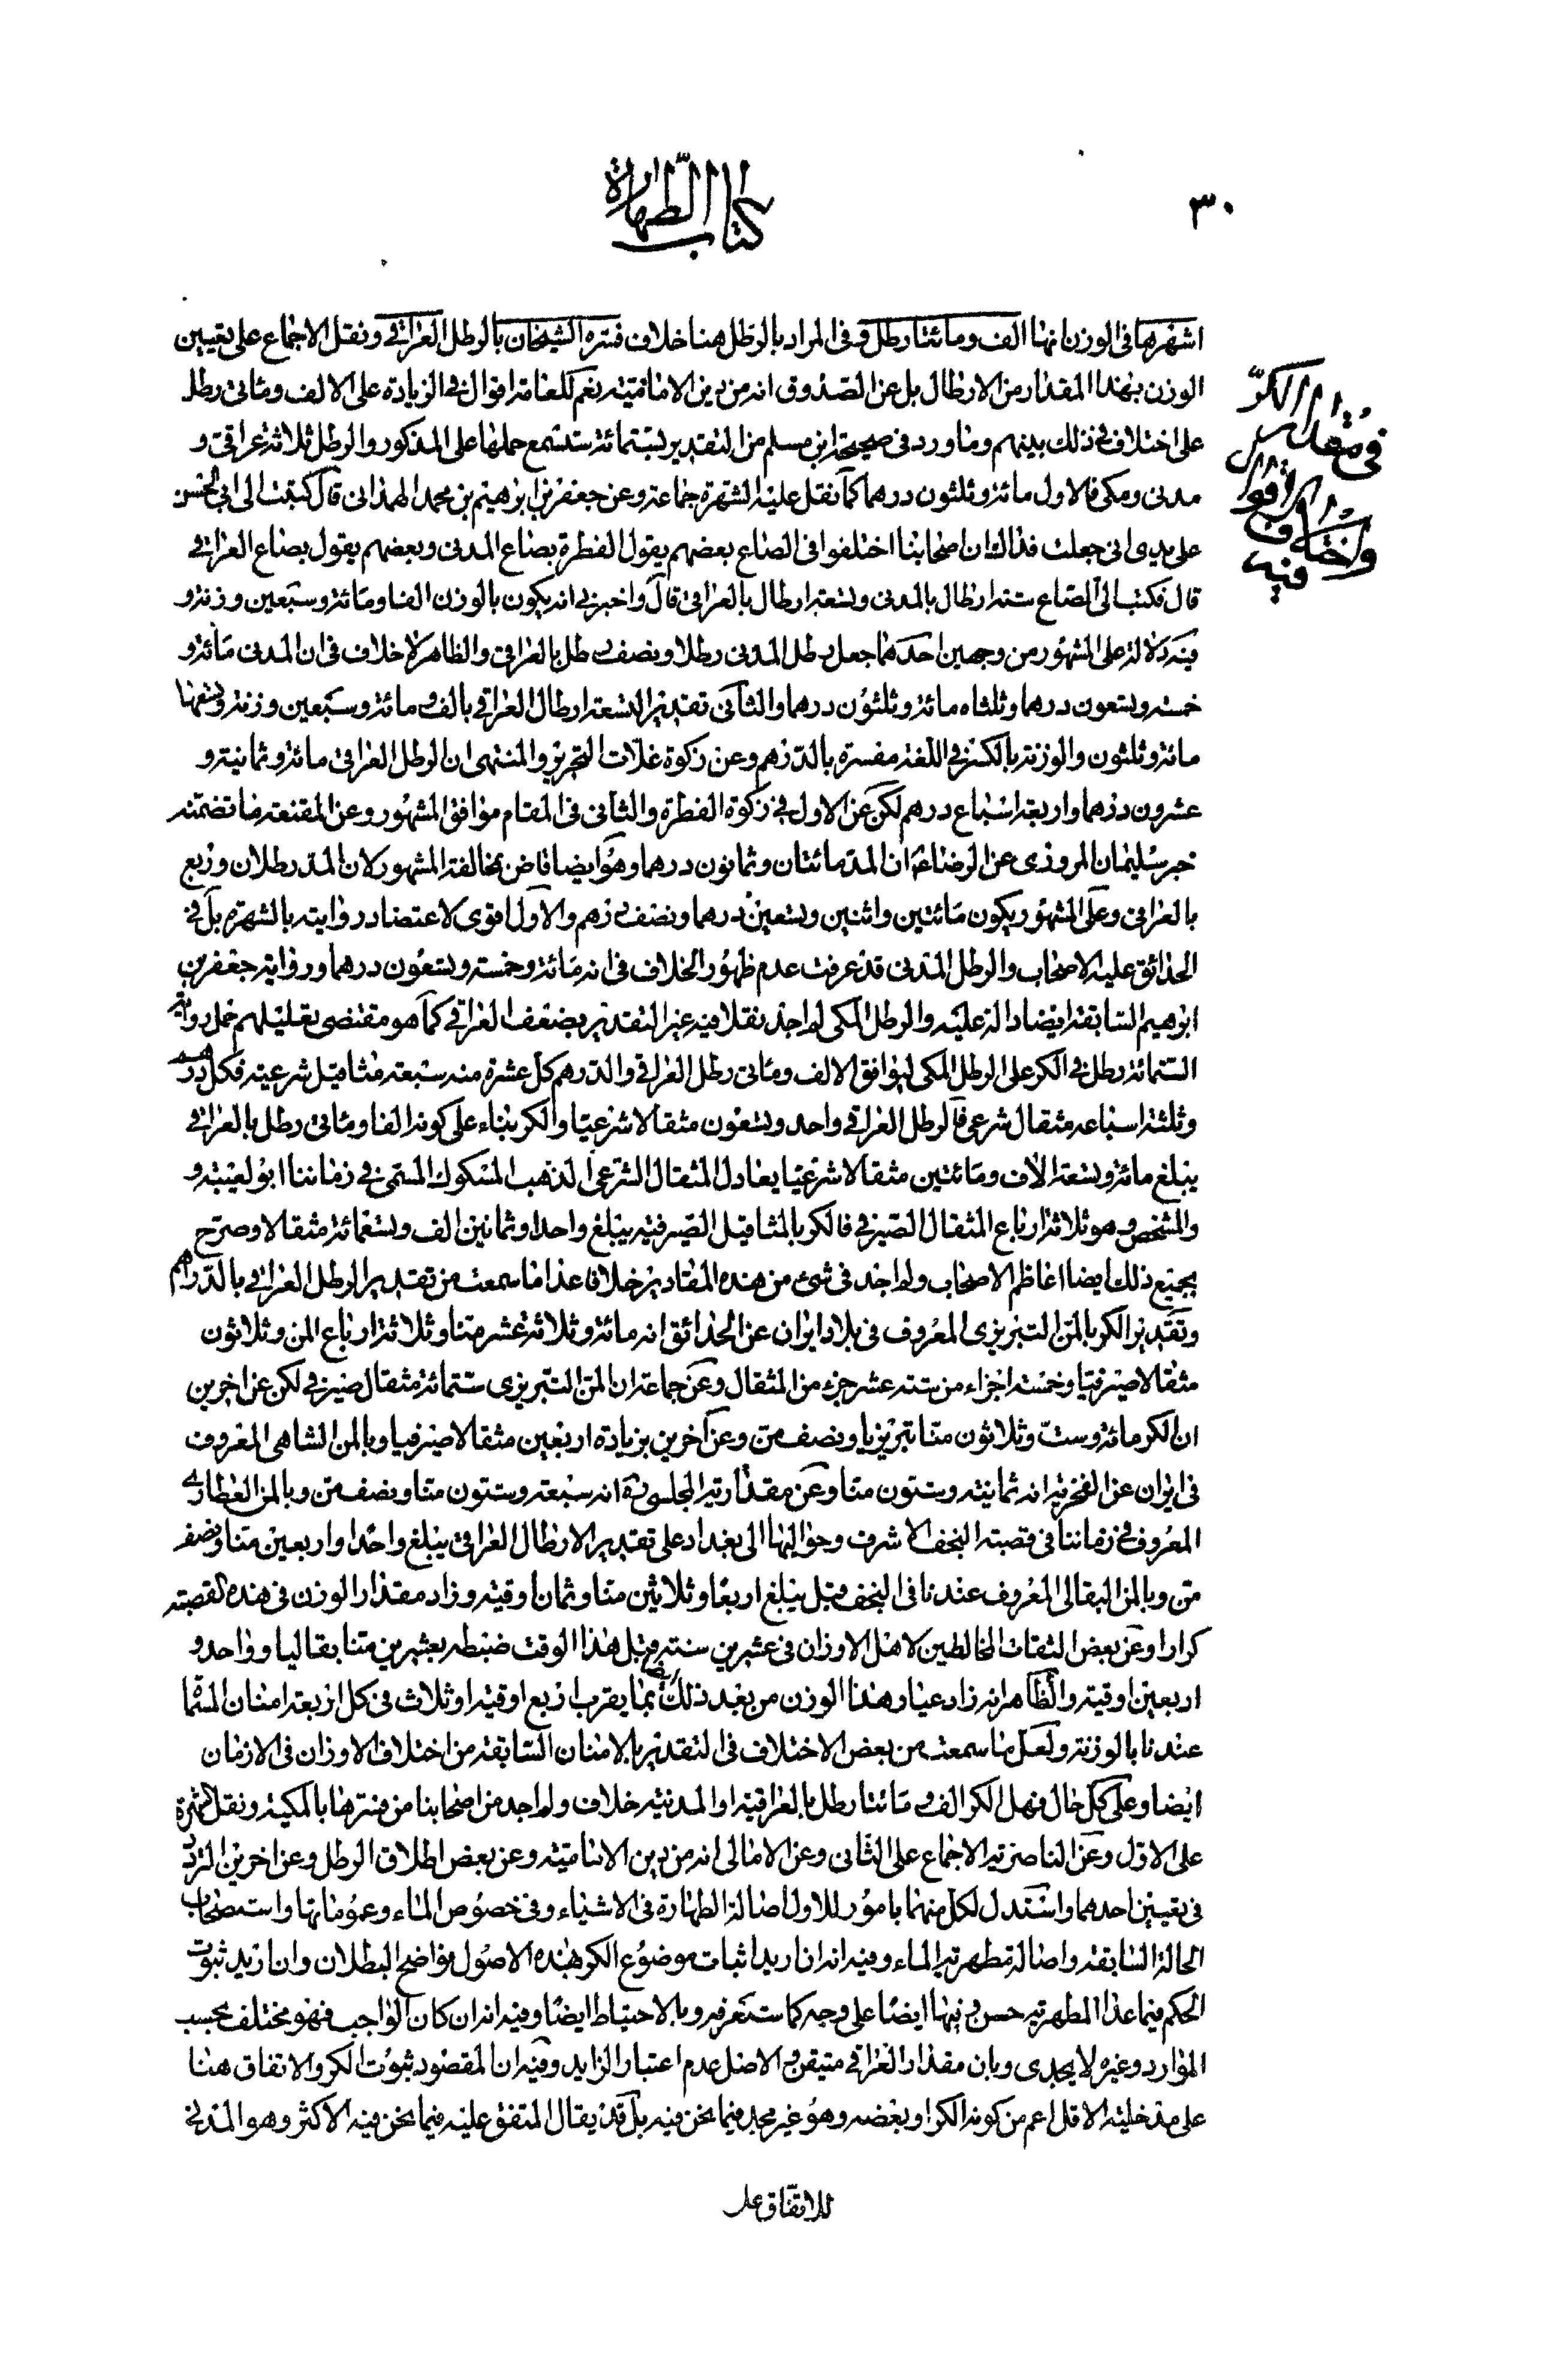 ٣٠
كتاب الطّهارة
في مقدار الكرّ
واختلاف الاقوال
فيه
اشهرها في الوزن انها الف ومائتا رطل وفي المراد بالرطل هنا خلاف فسره الشيخان بالرطل العراقي ونقل الاجماع على تعيين
الوزن بهذا المقدار من الارطال بل عن الصدوق انه من دين الامامية نعم للعامة اقوال في الزيادة على الالف ومائتي رطل
على اختلاف في ذلك بينهم وما ورد في صحيحة ابن مسلم من التقدير بستمائة ستسمع حملها على المذكور والرطل ثلاثة عراقي و
مدني ومكي فالاول مائة وثلثون درهما كما نقل عليه الشهرة جماعة وعن جعفر بن ابرهيم بن محمد الهمداني قال كتبت الى ابي الحسن
على يدي ابي جعلت فداك ان اصحابنا اختلفوا في الصاع بعضهم يقول الفطرة بصاع المدني وبعضهم يقول بصاع العراقي
قال فكتب الي الصاع ستة ارطال بالمدني وتسعة ارطال بالعراقي قال واخبرني انه يكون بالوزن الفا ومائة وسبعين وزنة و
فيه دلالة على المشهور من وجهين احدهما جعل رطل المدني رطلا ونصف رطل بالعراقي والظاهر لا خلاف في ان المدني مائة و
خمسة وتسعون درهما وثلثاه مائة وثلثون درهما والثاني تقدير التسعة ارطال العراقي بالف ومائة وسبعين وزنة وتسعها
مائة وثلثون والوزنة بالكسر في اللغة مفسرة بالدرهم وعن زكوة غلات التحرير والمنتهى ان الرطل العراقي مائة وثمانية و
عشرون درهما واربعة اسباع درهم لكن عن الاول في زكوة الفطرة والثاني في المقام موافق المشهور وعن المقنعة ما تضمنته
خبر سليمان المروزي عن الرضا ع ان المد مائتان وثمانون درهما وهو ايضا قاض بمخالفة المشهور لان المد رطلان وربع
بالعراقي وعلى المشهور يكون مائتين واثنين وتسعين درهما ونصف درهم والاول اقوى لاعتضاد روايته بالشهرة بل في
الحدائق عليه الاصحاب والرطل المدني قد عرفت عدم ظهور الخلاف في انه مائة وخمسة وتسعون درهما ورواية جعفر بن
ابرهيم السابقة ايضا دالة عليه والرطل المكي لم اجد نقلا فيه غير التقدير بضعف العراقي كما هو مقتضى تعليلهم حمل رواية
الستمائة رطل في الكر على الرطل المكي ليوافق الالف ومائتي رطل العراقي والدرهم كل عشرة منه سبعة مثاقيل شرعية فكل درهم
وثلثة اسباعه مثقال شرعي فالرطل العراقي واحد وتسعون مثقالا شرعيا والكر بناء على كونه الفا ومائتي رطل بالعراقي
يبلغ مائة وتسعة الاف ومائتين مثقالا شرعيا يعادل المثقال الشرعي الذهب المسكوك المسمى في زماننا ابو لعيبة و
والمشخص وهو ثلاثة ارباع المثقال الصيرفي فالكر بالمثاقيل الصيرفية يبلغ واحدا وثمانين الف وتسعمائة مثقالا وصرح
بجميع ذلك ايضا اعاظم الاصحاب ولم اجد في شيء من هذه المقادير خلافا عدا ما سمعت من تقدير الرطل العراقي بالدراهم
وتقدير الكر بالمن التبريزي المعروف في بلاد ايران عن الحدائق انه مائة وثلاثة عشر منا وثلاثة ارباع المن وثلاثون
مثقالا صيرفيا وخمسة اجزاء من ستة عشر جزء من المثقال وعن جماعة ان المن التبريزي ستمائة مثقال صيرفي لكن عن اخرين
ان الكر مائة وست وثلاثون منا تبريزيا ونصف من وعن اخرين بزيادة اربعين مثقالا صيرفيا وبالمن الشاهي المعروف
في ايران عن الفخرية انه ثمانية وستون منا وعن مقدارية المجلسي ره انه سبعة وستون منا ونصف من وبالمن العطاري
المعروف في زماننا في قصبة النجف الاشرف وحواليها الى بغداد على تقدير الارطال العراقي يبلغ واحدا واربعين منا ونصف
من وبالمن البقالي المعروف عندنا في النجف قبل يبلغ اربعا وثلاثين منا وثمان اوقية وزاد مقدار الوزن في هذه القصبة
كرارا وعن بعض الثقات الخالطين لاهل الاوزان في عشرين سنة قبل هذا الوقت ضبطه بعشرين منا بقاليا وواحد و
اربعين اوقية والظاهر انه زاد عيار هذا الوزن من بعد ذلك ايضا بما يقرب اربع اوقية او ثلاث في كل اربعة امنان المسماة
عندنا بالوزنة ولعل ما سمعت من بعض الاختلاف في التقدير بالامنان السابقة من اختلاف الاوزان في الازمان
ايضا وعلى كل حال فهل الكر الف ومائتا رطل بالعراقية او المدنية خلاف ولم اجد من اصحابنا من فسرها بالمكية ونقل الشهرة
على الاول وعن الناصرية الاجماع على الثاني وعن الامالي انه من دين الامامية وعن بعض اطلاق الرطل وعن اخرين التردد
في تعيين احدهما واستدل لكل منهما بامور للاول اصالة الطهارة في الاشياء وفي خصوص الماء وعموماتها واستصحاب
الحالة السابقة واصالة مطهرية الماء وفيه انه ان اريد اثبات موضوع الكر بهذه الاصول فواضح البطلان وان اريد ثبوت
الحكم فيما عدا المطهرية حسن وفيها ايضا على وجه كما ستعرفه وبالاحتياط ايضا وفيه انه ان كان الواجب فهو مختلف بحسب
الموارد وغيره لا يجدي وبان مقدار العراقي متيقن والاصل عدم اعتبار الزايد وفيه ان المقصود ثبوت الكر والاتفاق هنا
على مدخلية الاقل اعم من كونه الكر او بعضه وهو غير مجد فيما نحن فيه بل قد يقال المتفق عليه فيما نحن فيه الاكثر وهو المدني
للاتفاق على